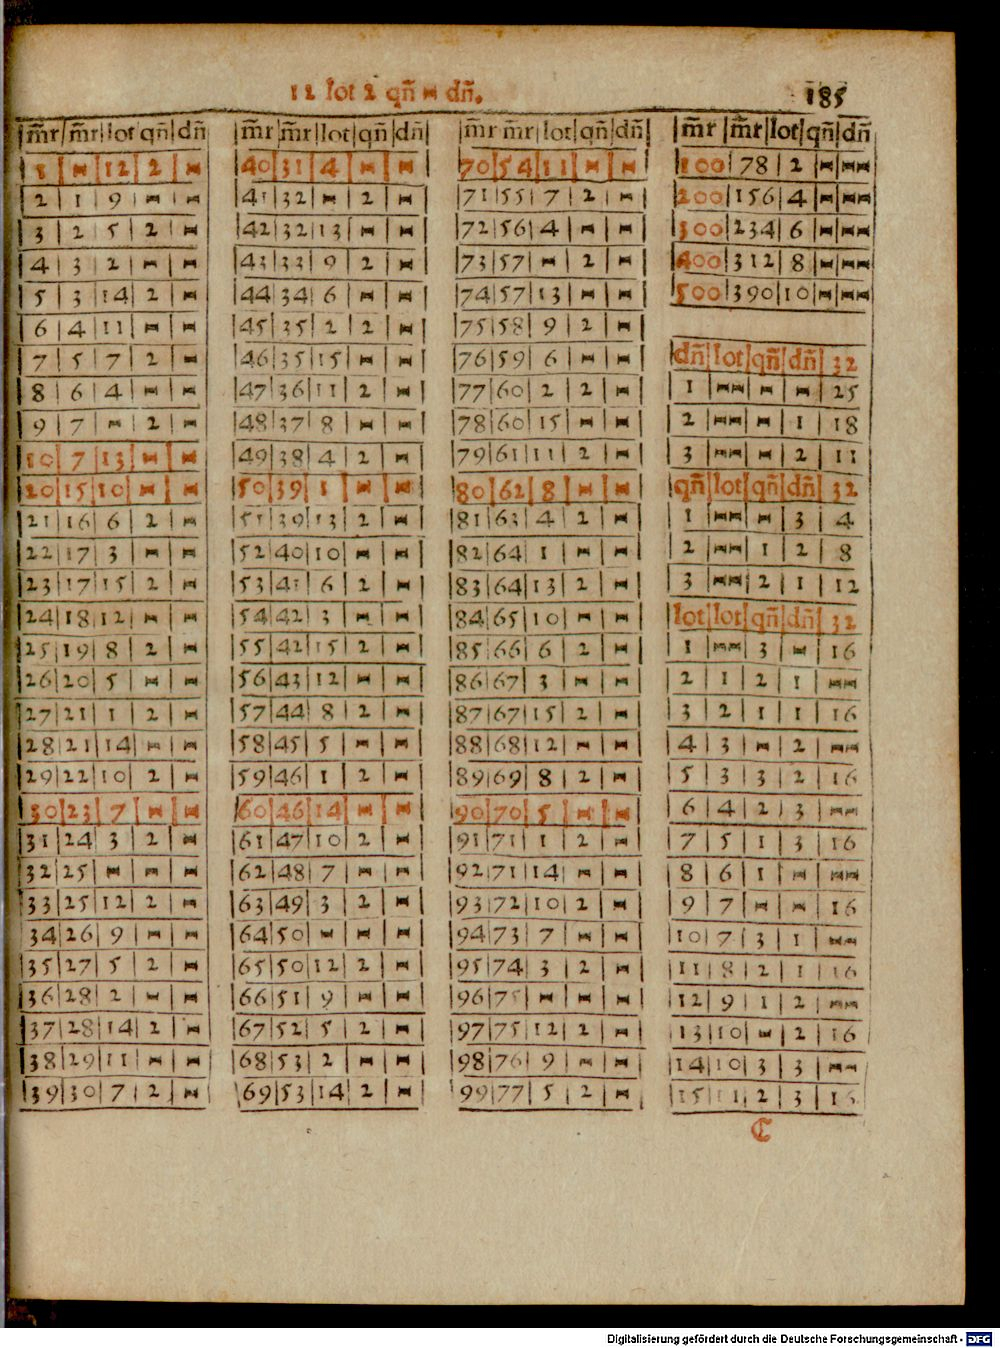 12 lot 2 qñ ⑅ dñ.
185
m̃r | m̃r | lot | qñ | dñ
1 | ⑅ | 12 | 2 | ⑅
2 | 1 | 9 | ⑅ | ⑅
3 | 2 | 5 | 2 | ⑅
4 | 3 | 2 | ⑅ | ⑅
5 | 3 | 14 | 2 | ⑅
6 | 4 | 11 | ⑅ | ⑅
7 | 5 | 7 | 2 | ⑅
8 | 6 | 4 | ⑅ | ⑅
9 | 7 | ⑅ | 2 | ⑅
10 | 7 | 13 | ⑅ | ⑅
20 | 15 | 10 | ⑅ | ⑅
21 | 16 | 6 | 2 | ⑅
22 | 17 | 3 | ⑅ | ⑅
23 | 17 | 15 | 2 | ⑅
24 | 18 | 12 | ⑅ | ⑅
25 | 19 | 8 | 2 | ⑅
26 | 20 | 5 | ⑅ | ⑅
27 | 21 | 1 | 2 | ⑅
28 | 21 | 14 | ⑅ | ⑅
29 | 22 | 10 | 2 | ⑅
30 | 23 | 7 | ⑅ | ⑅
31 | 24 | 3 | 2 | ⑅
32 | 25 | ⑅ | ⑅ | ⑅
33 | 25 | 12 | 2 | ⑅
34 | 26 | 9 | ⑅ | ⑅
35 | 27 | 5 | 2 | ⑅
36 | 28 | 2 | ⑅ | ⑅
37 | 28 | 14 | 2 | ⑅
38 | 29 | 11 | ⑅ | ⑅
39 | 30 | 7 | 2 | ⑅
m̃r | m̃r | lot | qñ | dñ
40 | 31 | 4 | ⑅ | ⑅
41 | 32 | ⑅ | 2 | ⑅
42 | 32 | 13 | ⑅ | ⑅
43 | 33 | 9 | 2 | ⑅
44 | 34 | 6 | ⑅ | ⑅
45 | 35 | 2 | 2 | ⑅
46 | 35 | 15 | ⑅ | ⑅
47 | 36 | 11 | 2 | ⑅
48 | 37 | 8 | ⑅ | ⑅
49 | 38 | 4 | 2 | ⑅
50 | 39 | 1 | ⑅ | ⑅
51 | 39 | 13 | 2 | ⑅
52 | 40 | 10 | ⑅ | ⑅
53 | 41 | 6 | 2 | ⑅
54 | 42 | 3 | ⑅ | ⑅
55 | 42 | 15 | 2 | ⑅
56 | 43 | 12 | ⑅ | ⑅
57 | 44 | 8 | 2 | ⑅
58 | 45 | 5 | ⑅ | ⑅
59 | 46 | 1 | 2 | ⑅
60 | 46 | 14 | ⑅ | ⑅
61 | 47 | 10 | 2 | ⑅
62 | 48 | 7 | ⑅ | ⑅
63 | 49 | 3 | 2 | ⑅
64 | 50 | ⑅ | ⑅ | ⑅
65 | 50 | 12 | 2 | ⑅
66 | 51 | 9 | ⑅ | ⑅
67 | 52 | 5 | 2 | ⑅
68 | 53 | 2 | ⑅ | ⑅
69 | 53 | 14 | 2 | ⑅
m̃r m̃r | lot | qñ | dñ
70 | 54 | 11 | ⑅ | ⑅
71 | 55 | 7 | 2 | ⑅
72 | 56 | 4 | ⑅ | ⑅
73 | 57 | ⑅ | 2 | ⑅
74 | 57 | 13 | ⑅ | ⑅
75 | 58 | 9 | 2 | ⑅
76 | 59 | 6 | ⑅ | ⑅
77 | 60 | 2 | 2 | ⑅
78 | 60 | 15 | ⑅ | ⑅
79 | 61 | 11 | 2 | ⑅
80 | 62 | 8 | ⑅ | ⑅
81 | 63 | 4 | 2 | ⑅
82 | 64 | 1 | ⑅ | ⑅
83 | 64 | 13 | 2 | ⑅
84 | 65 | 10 | ⑅ | ⑅
85 | 66 | 6 | 2 | ⑅
86 | 67 | 3 | ⑅ | ⑅
87 | 67 | 15 | 2 | ⑅
88 | 68 | 12 | ⑅ | ⑅
89 | 69 | 8 | 2 | ⑅
90 | 70 | 5 | ⑅ | ⑅
91 | 71 | 1 | 2 | ⑅
92 | 71 | 14 | ⑅ | ⑅
93 | 72 | 10 | 2 | ⑅
94 | 73 | 7 | ⑅ | ⑅
95 | 74 | 3 | 2 | ⑅
96 | 75 | ⑅ | ⑅ | ⑅
97 | 75 | 12 | 2 | ⑅
98 | 76 | 9 | ⑅ | ⑅
99 | 77 | 5 | 2 | ⑅
m̃r | m̃r | lot | qñ | dñ
100 | 78 | 2 | ⑅ | ⑅⑅
200 | 156 | 4 | ⑅ | ⑅⑅
300 | 234 | 6 | ⑅ | ⑅⑅
400 | 312 | 8 | ⑅ | ⑅⑅
500 | 390 | 10 | ⑅ | ⑅⑅
dñ | lot | qñ | dñ | 32
1 | ⑅⑅ | ⑅ | ⑅ | 25
2 | ⑅⑅ | ⑅ | 1 | 18
3 | ⑅⑅ | ⑅ | 2 | 11
qñ | lot | qñ | dñ | 32
1 | ⑅⑅ | ⑅ | 3 | 4
2 | ⑅⑅ | 1 | 2 | 8
3 | ⑅⑅ | 2 | 1 | 12
lot | lot | qñ | dñ | 32
1 | ⑅⑅ | 3 | ⑅ | 16
2 | 1 | 2 | 1 | ⑅⑅
3 | 2 | 1 | 1 | 16
4 | 3 | ⑅ | 2 | ⑅⑅
5 | 3 | 3 | 2 | 16
6 | 4 | 2 | 3 | ⑅⑅
7 | 5 | 1 | 3 | 16
8 | 6 | 1 | ⑅ | ⑅⑅
9 | 7 | ⑅ | ⑅ | 16
10 | 7 | 3 | 1 | ⑅⑅
11 | 8 | 2 | 1 | 16
12 | 9 | 1 | 2 | ⑅⑅
13 | 10 | ⑅ | 2 | 16
14 | 10 | 3 | 3 | ⑅⑅
15 | 11 | 2 | 3 | 16
C
Digitalisierung gefördert durch die Deutsche Forschungsgemeinschaft - DFG